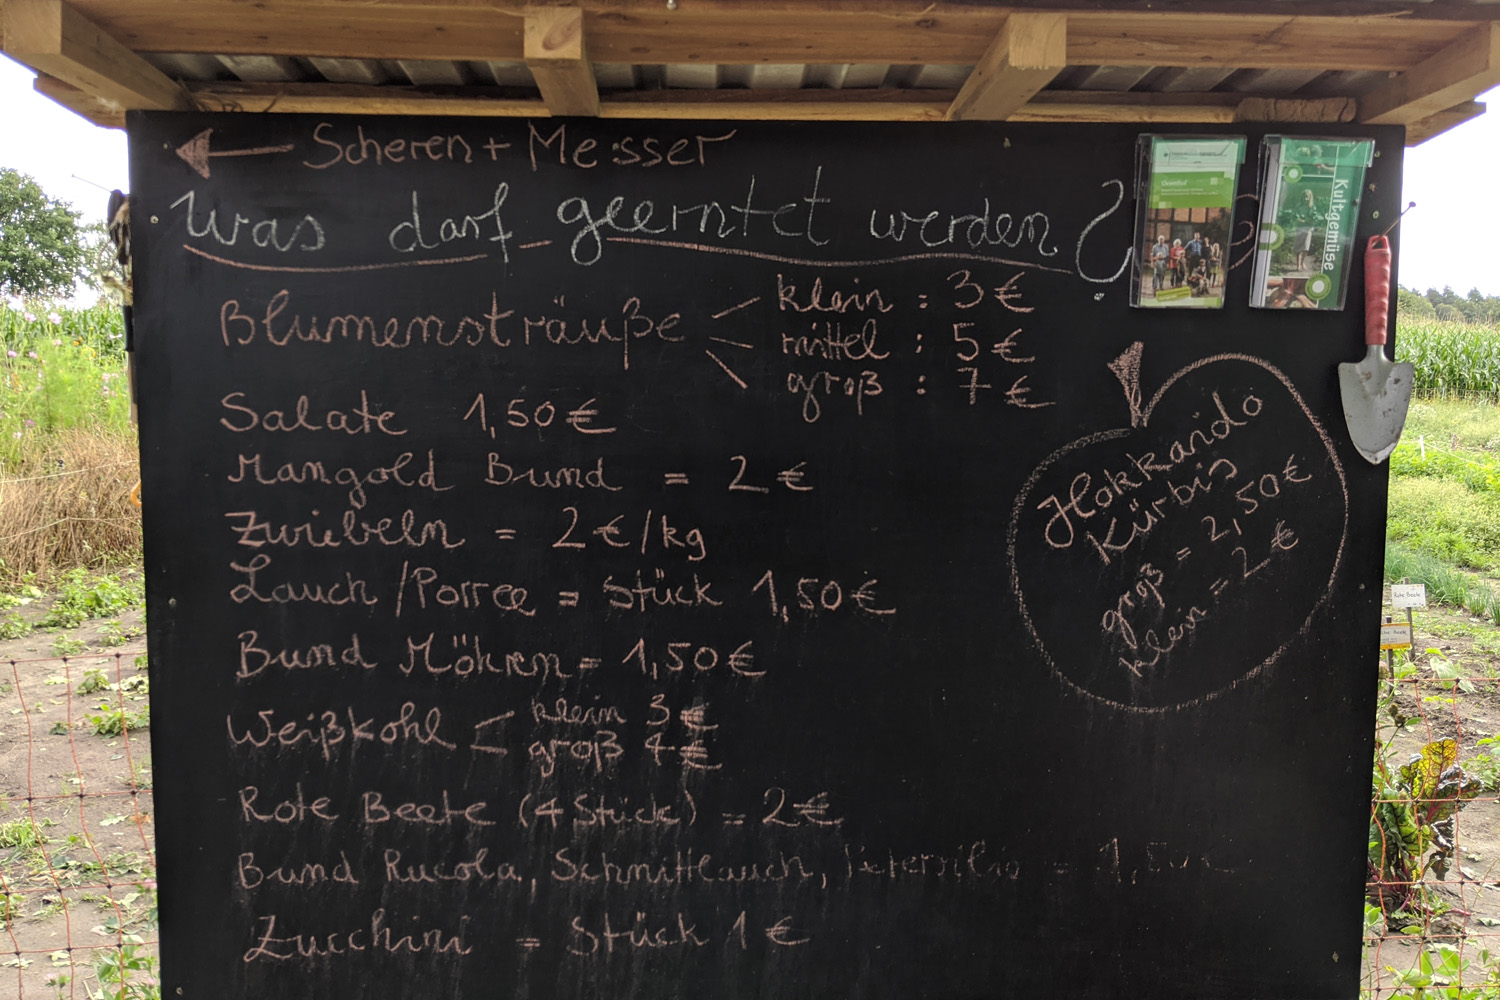 ← Scheren + Messer
Was darf geerntet werden?
Blumensträuße
klein : 3 €
mittel : 5 €
groß : 7 €
Salate 1,50 €
Mangold Bund = 2 €
Zwiebeln = 2 €/kg
Lauch /Porree = Stück 1,50 €
Bund Möhren = 1,50 €
Weißkohl
klein 3 €
groß 4 €
Rote Beete (4 Stück) = 2 €
Bund Rucola, Schnittlauch, Petersilie = 1,50 €
Zucchini = Stück 1 €
Hokkaido
Kürbis
groß = 2,50 €
klein = 2 €
Kultgemüse
Rote Beete